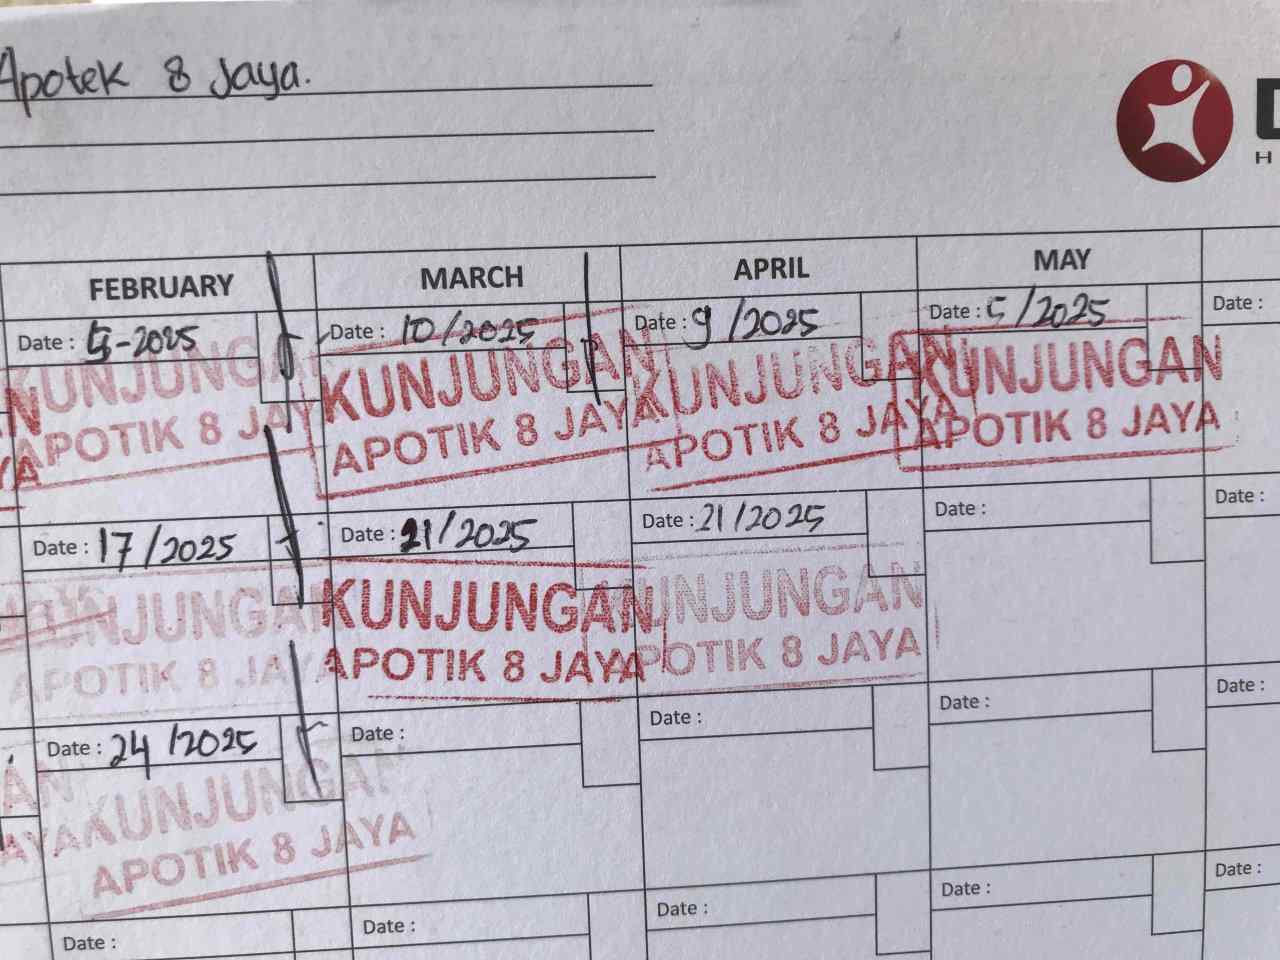 Apotek 8 Jaya.
H
FEBRUARY MARCH APRIL MAY
Date : 5-2025 Date : 10/2025 Date : 9/2025 Date : 5/2025 Date :
KUNJUNGAN KUNJUNGAN KUNJUNGAN KUNJUNGAN
APOTIK 8 JAYA APOTIK 8 JAYA APOTIK 8 JAYA APOTIK 8 JAYA
Date : 17/2025 Date : 21/2025 Date : 21/2025 Date : Date :
KUNJUNGAN KUNJUNGAN KUNJUNGAN
APOTIK 8 JAYA APOTIK 8 JAYA APOTIK 8 JAYA
Date : 24/2025 Date : Date : Date : Date :
KUNJUNGAN
APOTIK 8 JAYA
Date : Date : Date : Date : Date :